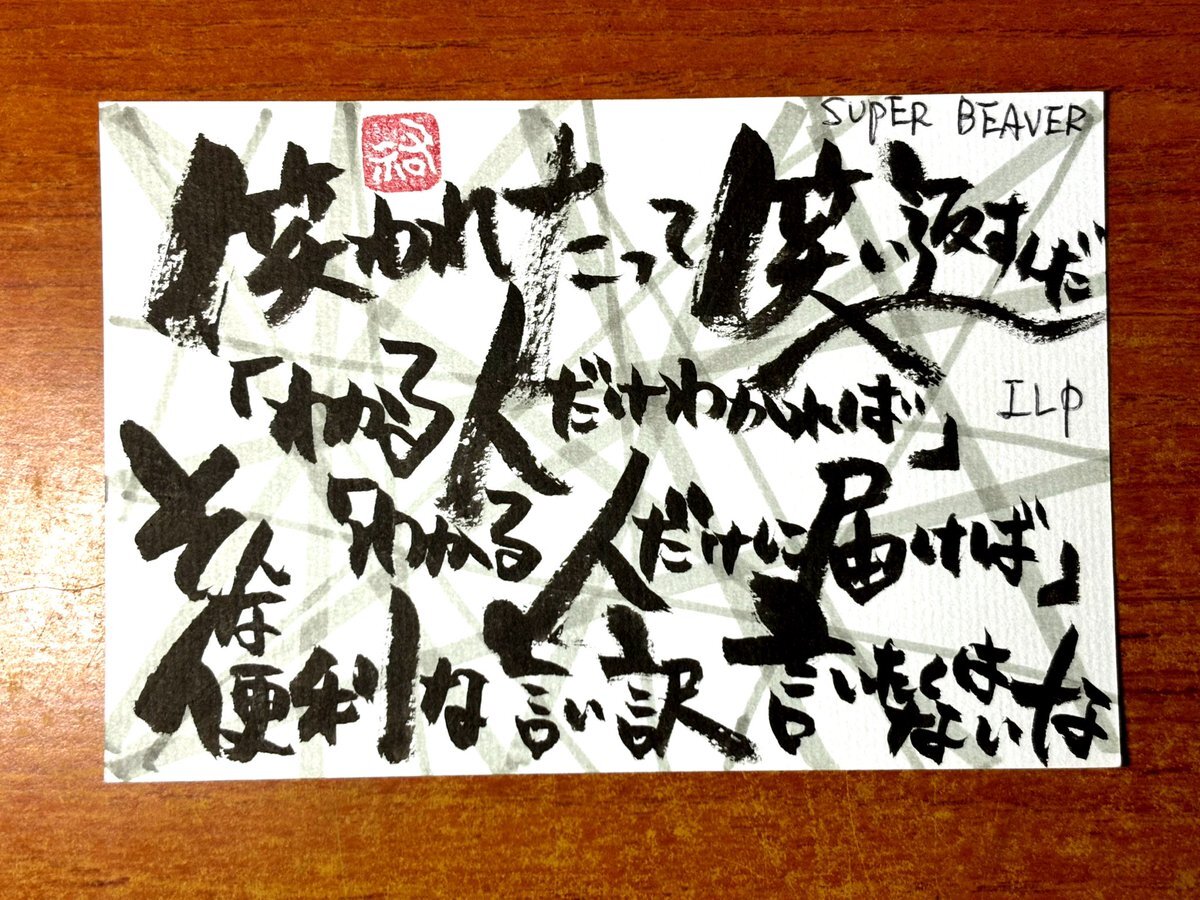 SUPER BEAVER
笑われたって笑い返すんだ
「わかる人だけわかれば」
ILP
「わかる人だけに届けば」
そんな
便利な言い訳 言いたくはないな